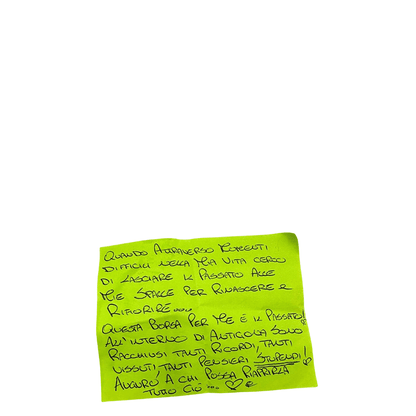 QUANDO ATTRAVERSO MOMENTI
DIFFICILI NELLA MIA VITA CERCO
DI LASCIARE IL PASSATO ALLE
MIE SPALLE PER RINASCERE E
RIFIORIRE....
QUESTA BORSA PER ME È IL PASSATO!
ALL'INTERNO DI ANTIGONA SONO
RACCHIUSI TANTI RICORDI, TANTI
VISSUTI, TANTI PENSIERI STUPENDI!
AUGURO A CHI POSSA RIAPRIRLA
TUTTO CIÒ...